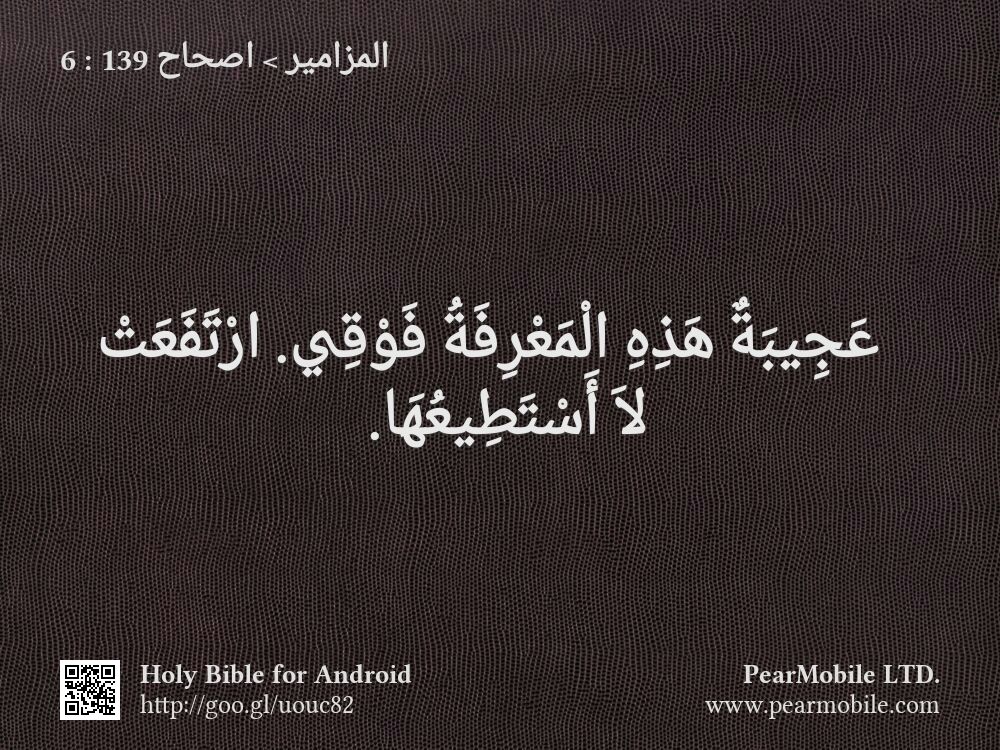 المزامير > اصحاح 139 : 6
عَجِيبَةٌ هَذِهِ الْمَعْرِفَةُ فَوْقِي. ارْتَفَعَتْ
لاَ أَسْتَطِيعُهَا.
Holy Bible for Android
http://goo.gl/uouc82
PearMobile LTD.
www.pearmobile.com